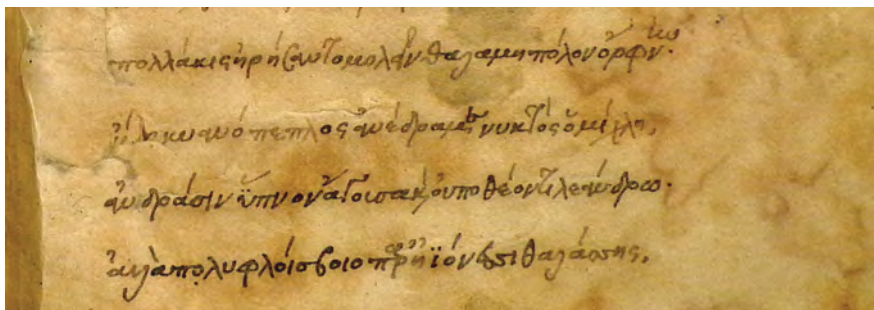 πολλάκις ἠρήσαντο μολεῖν θαλαμηπόλον ὄρφνην·
ἤδη κυανόπεπλος ἀνέδραμε νυκτὸς ὀμίχλη,
ἀνδράσιν ὕπνον ἄγουσα κ̀ οὐ ποθέοντι λεάνδρω·
ἀλλὰ πολυφλοίσβοιο παρ' ἠϊόνεσσι θαλάσσης,